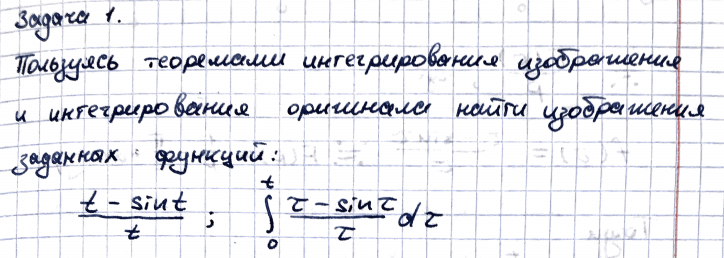 Задача 1.
Пользуясь теоремами интегрирования изображения
и интегрирования оригинала найти изображения
заданных функций:
(t - sin t)/t ; ∫₀ᵗ (τ - sin τ)/τ dτ